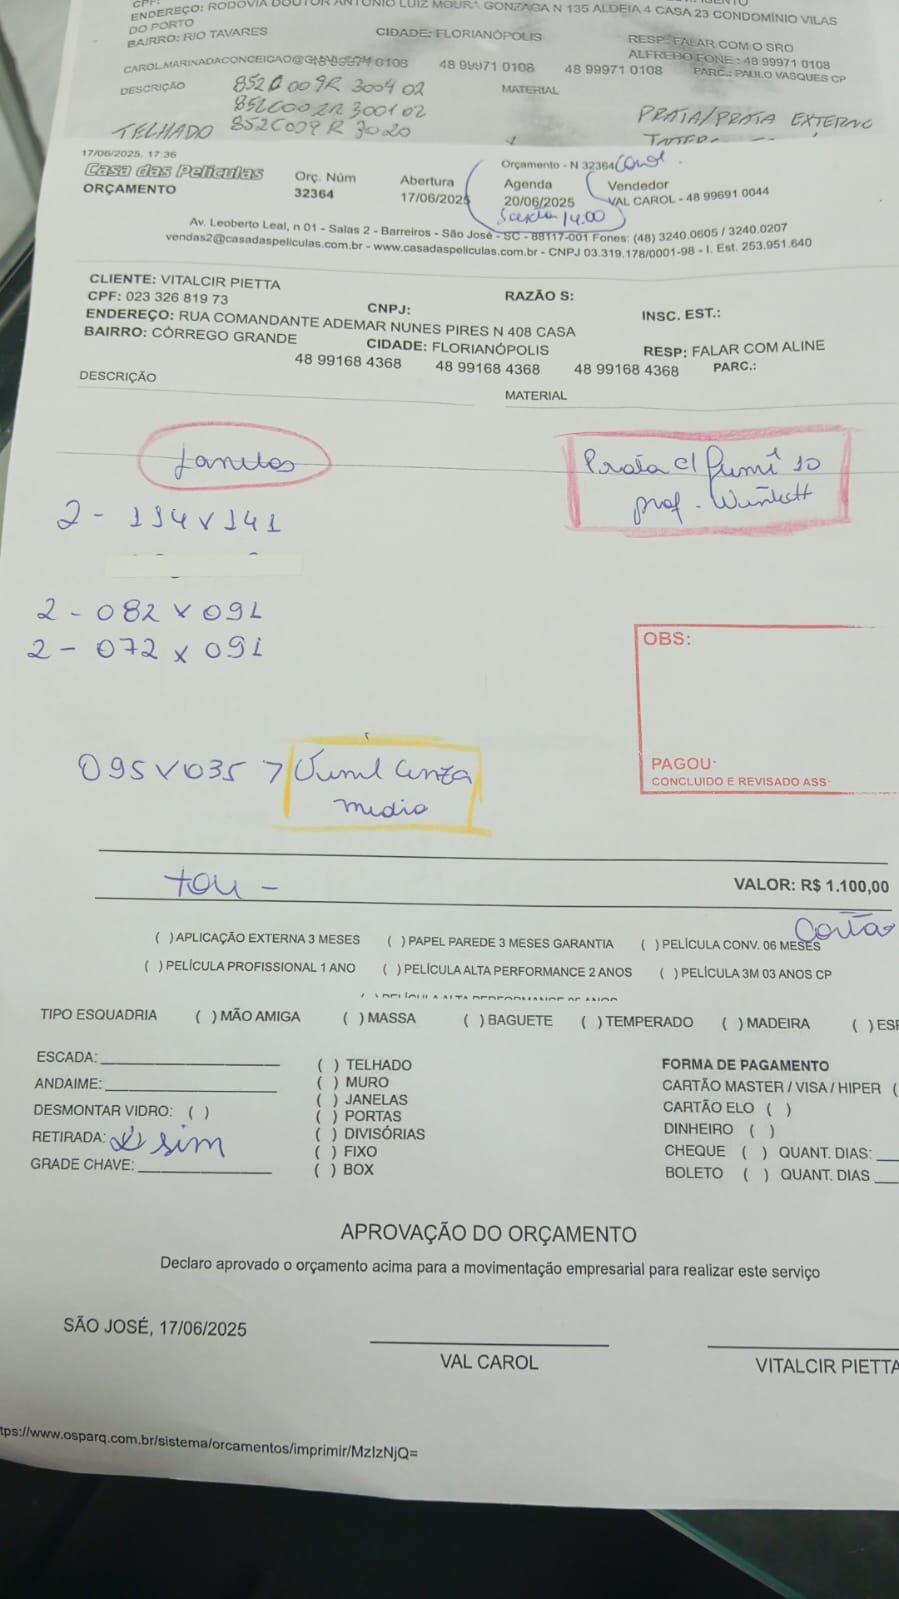 ENDEREÇO: RODOVIA DOUTOR ANTONIO LUIZ MOURA GONZAGA N 135 ALDEIA 4 CASA 23 CONDOMÍNIO VILAS
DO PORTO
BAIRRO: RIO TAVARES CIDADE: FLORIANÓPOLIS RESP: FALAR COM O SRO
ALFREDO FONE : 48 99971 0108
0108 48 99971 0108 48 99971 0108 PARC.: PAULO VASQUES CP
DESCRIÇÃO MATERIAL
PRATA/PRATA EXTERNO
TELHADO
17/06/2025, 17:36 Orçamento - N 32364 Carol
Casa das Películas Orç. Núm Abertura Agenda Vendedor
ORÇAMENTO 32364 17/06/2025 20/06/2025 VAL CAROL - 48 99691 0044
Sexta 14:00
Av. Leoberto Leal, n 01 - Salas 2 - Barreiros - São José - SC - 88117-001 Fones: (48) 3240.0605 / 3240.0207
vendas2@casadaspeliculas.com.br - www.casadaspeliculas.com.br - CNPJ 03.319.178/0001-98 - I. Est. 253.951.640
CLIENTE: VITALCIR PIETTA RAZÃO S:
CPF: 023 326 819 73 CNPJ: INSC. EST.:
ENDEREÇO: RUA COMANDANTE ADEMAR NUNES PIRES N 408 CASA
BAIRRO: CÓRREGO GRANDE CIDADE: FLORIANÓPOLIS RESP: FALAR COM ALINE
48 99168 4368 48 99168 4368 48 99168 4368 PARC.:
DESCRIÇÃO MATERIAL
Janelas
Prata c/ fumê 10
prof. 
2 - 114 x 141
2 - 082 x 091
2 - 072 x 091
OBS:
PAGOU:
CONCLUIDO E REVISADO ASS:
095 x 035 > Cinza
medio
VALOR: R$ 1.100,00
Cartão
( ) APLICAÇÃO EXTERNA 3 MESES ( ) PAPEL PAREDE 3 MESES GARANTIA ( ) PELÍCULA CONV. 06 MESES
( ) PELÍCULA PROFISSIONAL 1 ANO ( ) PELÍCULA ALTA PERFORMANCE 2 ANOS ( ) PELÍCULA 3M 03 ANOS CP
TIPO ESQUADRIA ( ) MÃO AMIGA ( ) MASSA ( ) BAGUETE ( ) TEMPERADO ( ) MADEIRA ( ) ESP
ESCADA: ( ) TELHADO FORMA DE PAGAMENTO
ANDAIME: ( ) MURO CARTÃO MASTER / VISA / HIPER (
DESMONTAR VIDRO: ( ) ( ) JANELAS CARTÃO ELO ( )
RETIRADA: (x) sim ( ) PORTAS DINHEIRO ( )
GRADE CHAVE: ( ) DIVISÓRIAS CHEQUE ( ) QUANT. DIAS:
( ) FIXO BOLETO ( ) QUANT. DIAS
( ) BOX
APROVAÇÃO DO ORÇAMENTO
Declaro aprovado o orçamento acima para a movimentação empresarial para realizar este serviço
SÃO JOSÉ, 17/06/2025
VAL CAROL VITALCIR PIETTA
tps://www.osparq.com.br/sistema/orcamentos/imprimir/MzIzNjQ=